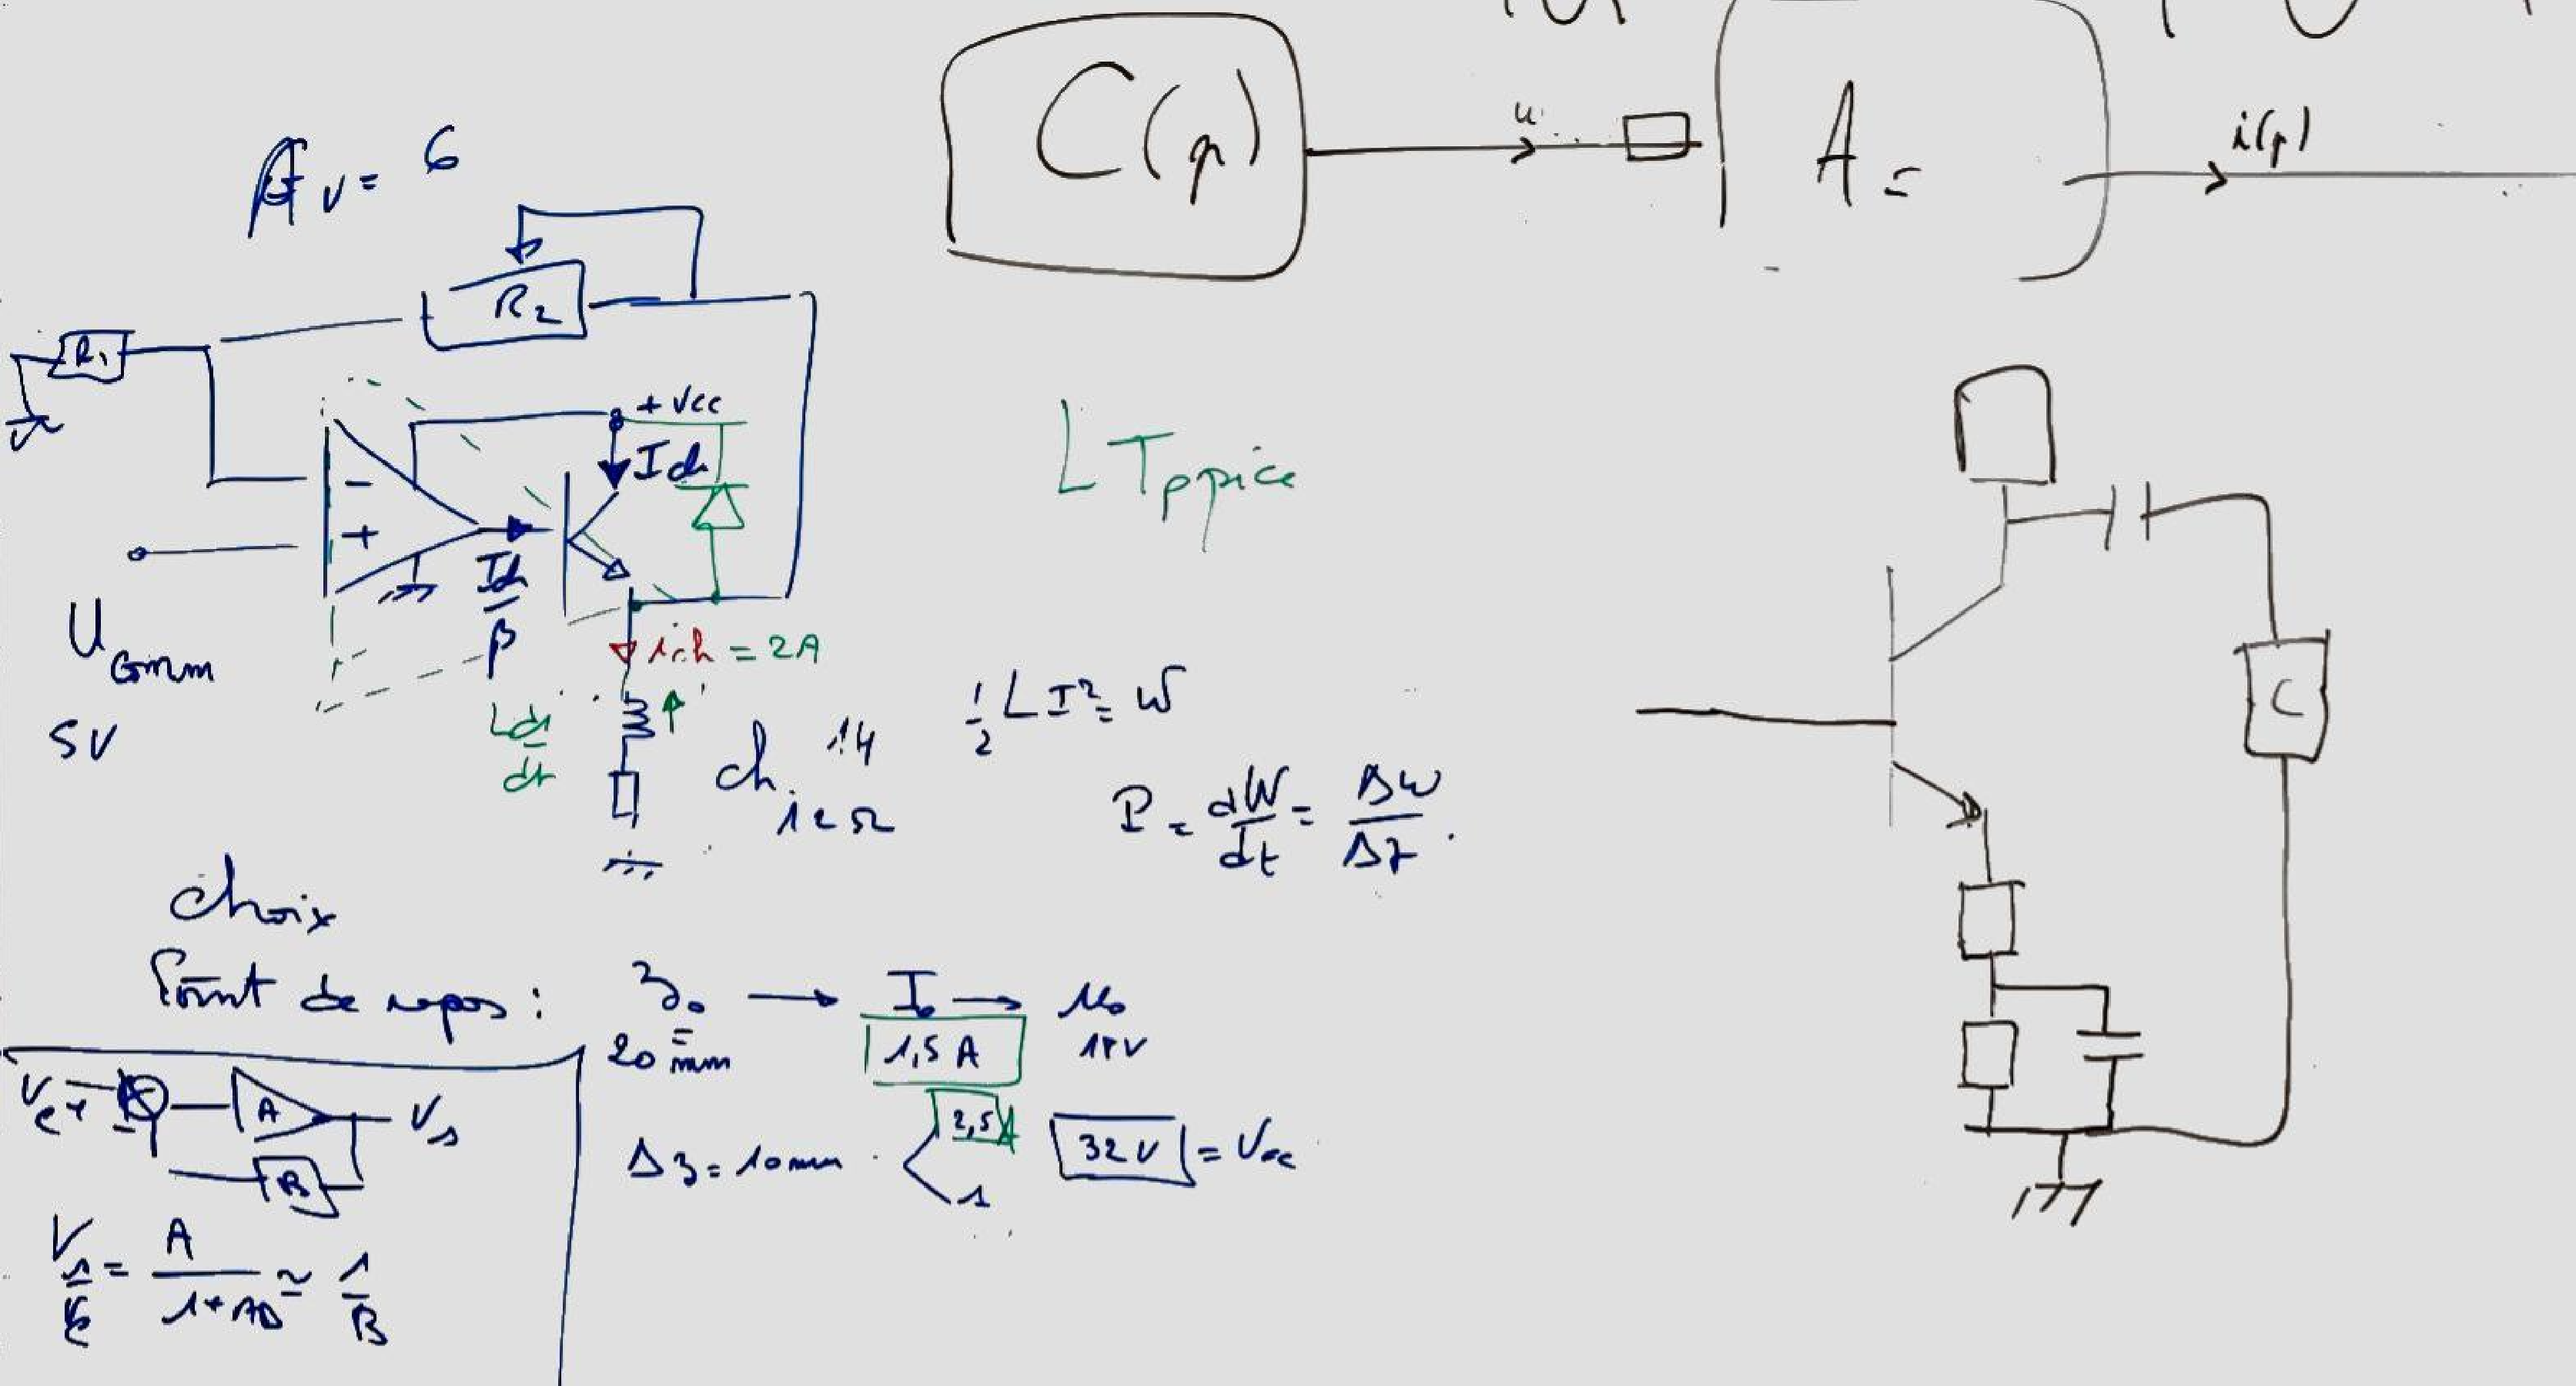 C(p)
u
A =
i(p)
Av = 6
R2
R1
+ Vcc
Ich
-
+
Ich
β
Ucomm
5V
ich = 2A
L di
dt
ch.
12Ω
LTspice
1/2 LI² = W
P = dW/dt = ΔW/Δt
C
choix
Point de repos : z0 → I0 → u0
20 mm 1,5 A 18V
Δz = 10mm 2,5A 32V = Vcc
1
Ve + - A Vs
B
Vs/Ve = A/(1+AB) ≃ 1/B